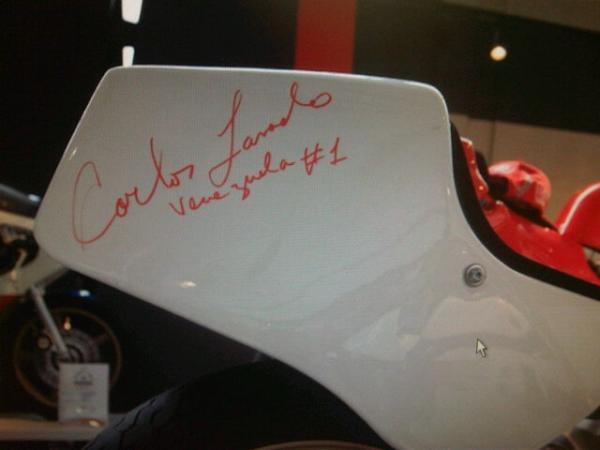 Carlos Lavado
Venezuela #1